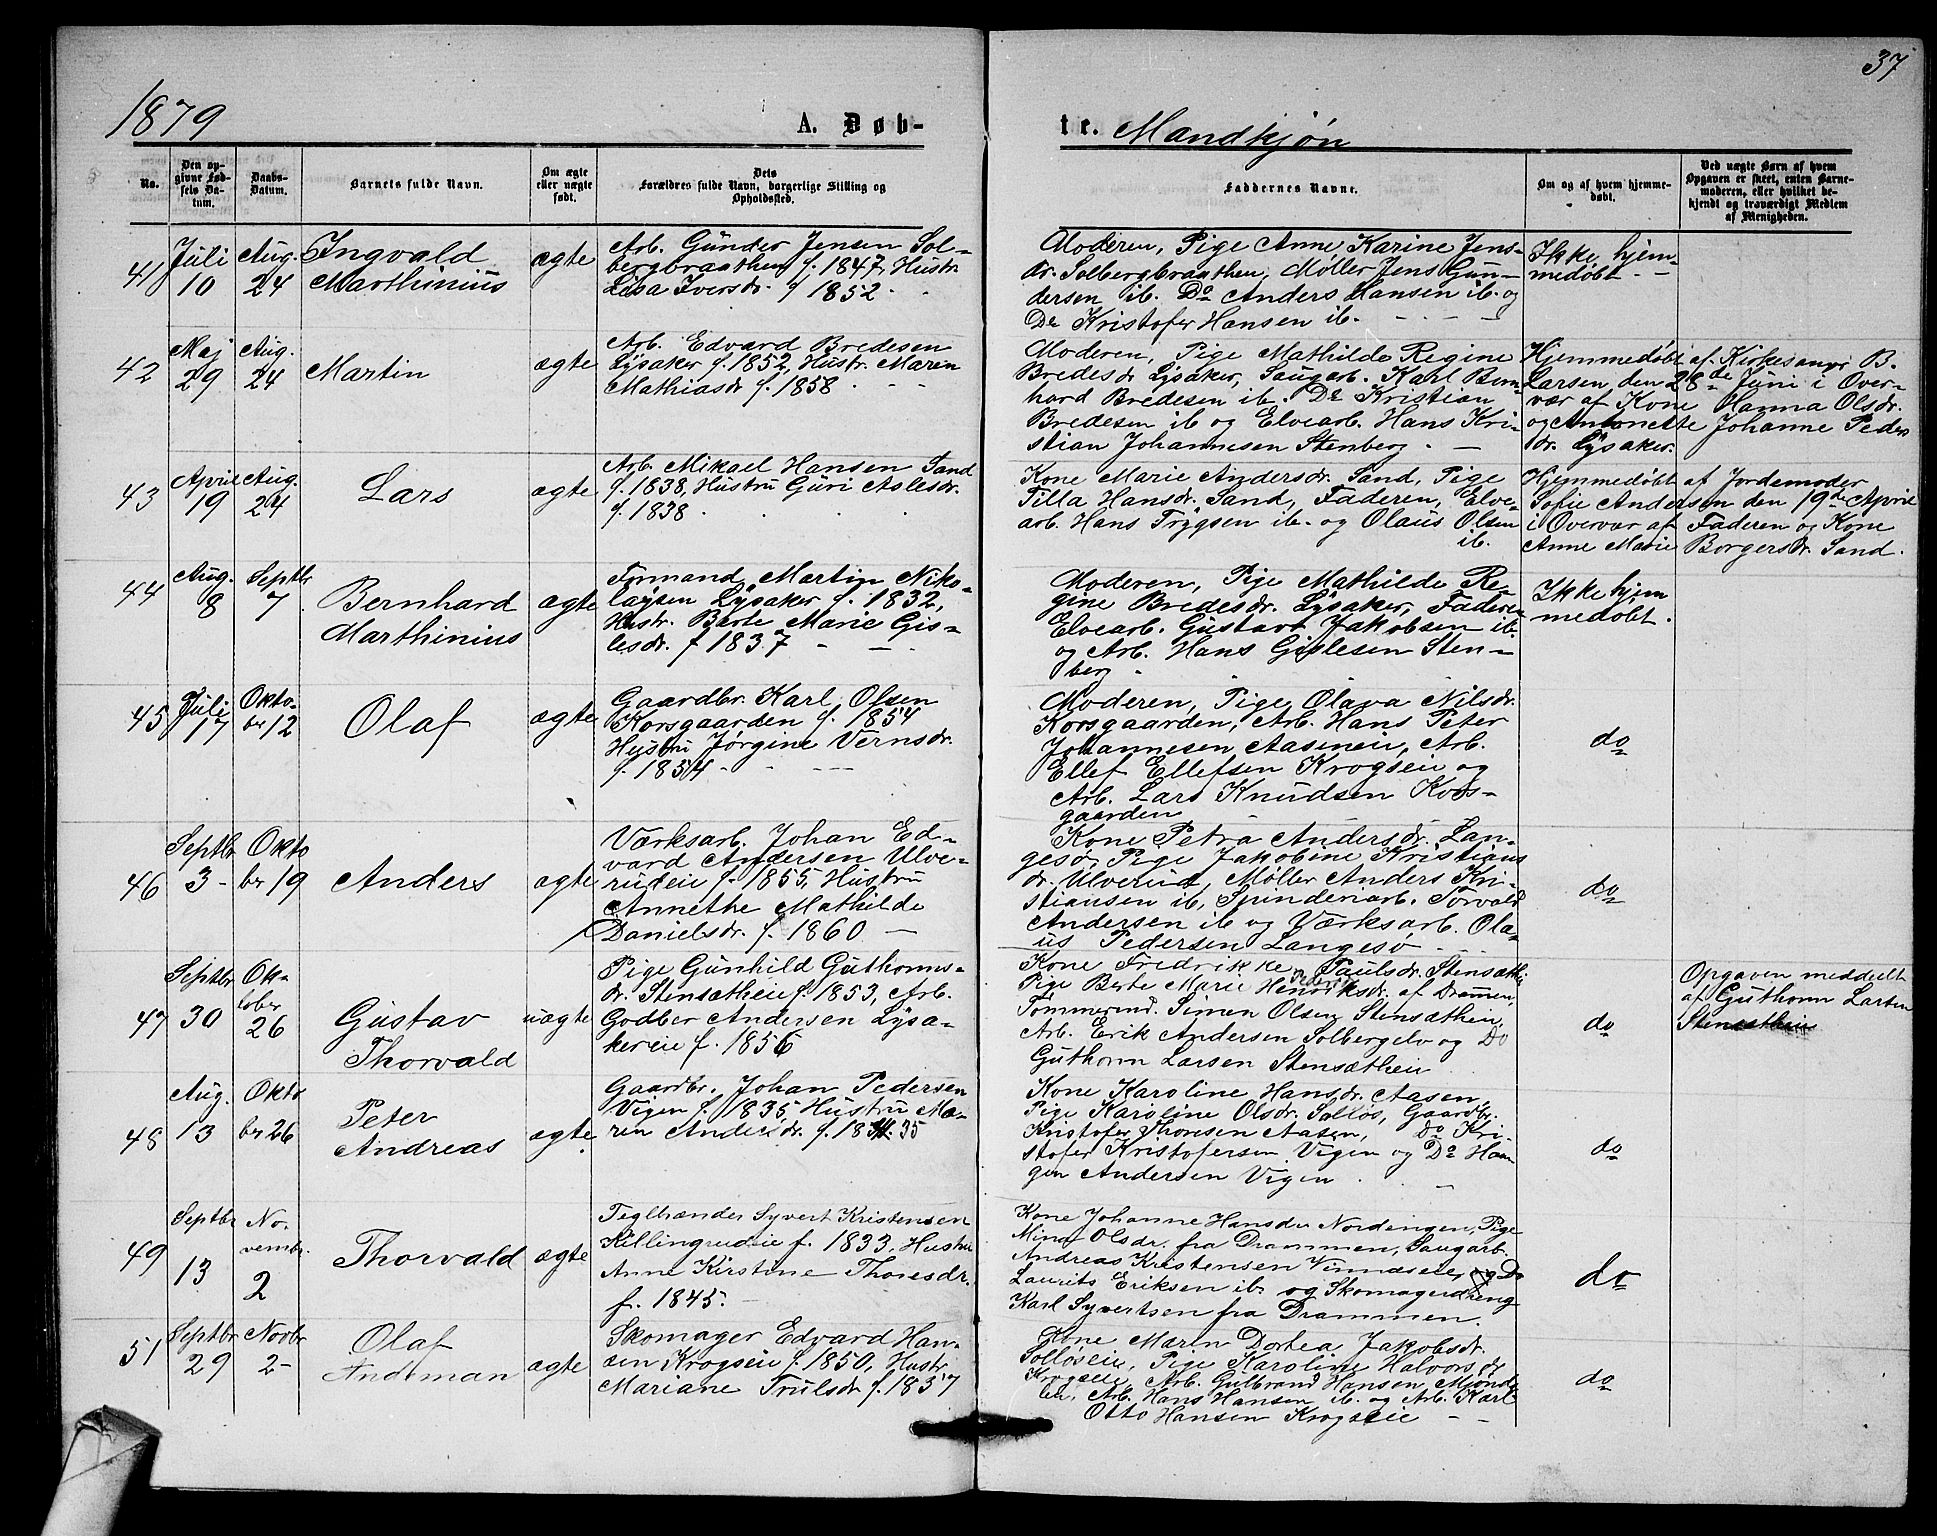 37
1879
A. Døb-
te. Mandkjøn
No.
Den op-
givne Fød-
sels Da-
tum.
Daabs-
Datum.
Barnets fulde Navn.
Om ægte
eller uægte
født.
Dets
Forældres fulde Navn, borgerlige Stilling og
Opholdssted.
Faddernes Navne.
Om og af hvem hjemme-
døbt.
Ved uægte Børn af hvem
Opgaven er skeet, enten Barne-
moderen, eller hvilket be-
kjendt og troværdigt Medlem
af Menigheden.
41
Juli
10
Aug.
24
Ingvald
Marthinius
ægte
Arb. Gunder Jensen Sol-
bergbraathen f. 1847, Hustr.
Lesa Iversdr. f 1852
Moderen, Pige Anne Karine Jens-
dr. Solbergbraathen, Møller Jens Gun-
dersen ib. Do Anders Hansen ib. og
Do Kristofer Hansen ib.
Ikke hjem-
medøbt
42
Maj
29
Aug.
24
Martin
ægte
Arb. Edvard Bredesen
Lysaker f. 1852, Hustr. Maren
Mathiasdr f. 1858
Moderen, Pige Mathilde Regine
Bredesdr Lysaker, Saugarb. Karl Bern
hard Bredesen ib. Do Kristian
Bredesen ib og Elvearb. Hans Kri-
stian Johannesen Stenberg
Hjemmedøbt af Kirkesangr B.
Larsen den 28de Juni i Over-
vær af Kone Hanna Olsdr.
og Antonette Johanne Peders
dr. Lysaker.
43
April
19
Aug.
24
Lars
ægte
Arb. Mikael Hansen Sand
f. 1838, Hustru Guri Aslesdr.
f. 1838
Kone Marie Andersdr. Sand, Pige
Tilla Hansdr. Sand, Faderen, Elve-
arb. Hans Trygsen ib. og Olaus Olsen
ib.
Hjemmedøbt af Jordemoder
Sofie Andersen den 19de April
i Overvær af Faderen og Kone
Anne Marie Borgersdr. Sand.
44
Aug.
8
Septbr
7
Bernhard
Marthinius
ægte
Formand Martin Niko-
laysen Lysaker f. 1832,
Hustr. Berte Marie Gis-
lesdr. f 1837
Moderen, Pige Mathilde Re-
gine Bredesdr. Lysaker, Faderen
Elvearb. Gustav Jakobsen ib
og Arb. Hans Gislesen Sten-
berg
Ikke hjem
medøbt.
45
Juli
17
Okto-
ber 12
Olaf
ægte
Gaardbr. Karl Olsen
Korsgaarden f. 1854
Hustru Jørgine Vernsdr.
f. 1854
Moderen, Pige Olava Nilsdr.
Korsgaarden, Arb. Hans Peter
Johannesen Aaseneie, Arb.
Ellef Ellefsen Krogseie og
Arb. Lars Knudsen Kors-
gaarden
do
46
Septbr
3
Okto
ber 19
Anders
ægte
Værksarb. Johan Ed-
vard Andersen Ulve-
rudeie f. 1855, Hustru
Annethe Mathilde
Danielsdr. f. 1860
Kone Petra Andersdr. Lan-
gesø, Pige Jakobine Kristians
dr. Ulverud, Møller Anders Kri-
stiansen ib, Spinderiarb. Torvald
Andersen ib og Værksarb. Ola-
us Pedersen Langesø
do
47
Septbr
30
Ok-
tober
26
Gustav
Thorvald
uægte
Pige Gunhild Guthorms-
dr. Stensætheie f. 1853, Arb.
Godber Andersen Lysa-
kereie f. 1856
Kone Fredrikke Paulsdr. Stensæthe
Pige Berte Marie Henriksdr. af Drammen,
Tømmermd. Simen Olsen Stensætheie,
Arb. Erik Andersen Solbergelv og Do
Guthorm Larsen Stensætheie
do
Opgaven meddeelt
af Guthorm Larsen
Stensætheie
48
Aug.
13
Okto
ber 26
Peter
Andreas
ægte
Gaardbr. Johan Pedersen
Vigen f. 1835, Hustru Ma-
ren Andersdr. f. 35
Kone Karoline Hansdr. Aasen,
Pige Karoline Olsdr. Solløs, Gaardbr.
Kristofer Thoresen Aasen, Do Kri-
stofer Kristofersen Vigen og Do Han
gen Andersen Vigen
do
49
Septbr
13
No-
vembr.
2
Thorvald
ægte
Teglbrænder Syvert Kristensen
Killingrudeie f. 1833, Hustru
Anne Kirstine Thoresdr.
f. 1845.
Kone Johanne Hansdr Nordengen, Pige
Mina Olsdr. fra Drammen, Saugarb.
Andreas Kristensen Vinnæseie, og Do
Laurits Eriksen ib. og Skomagerdreng
Karl Syvertsen fra Drammen.
do
51
Septbr
29
Novbr
2
Olaf
Andeman
ægte
Skomager Edvard Han-
sen Krogseie f. 1850, Hustr
Mariane Trulsdr f. 1857
Kone Maren Dortea Jakobsdr.
Solløseie, Pige Karoline Halvorsdr
Krogseie, Arb. Gulbrand Hansen Mjønda-
len, Arb. Hans Hansen ib. og Arb. Karl
Otto Hansen Krogseie
do